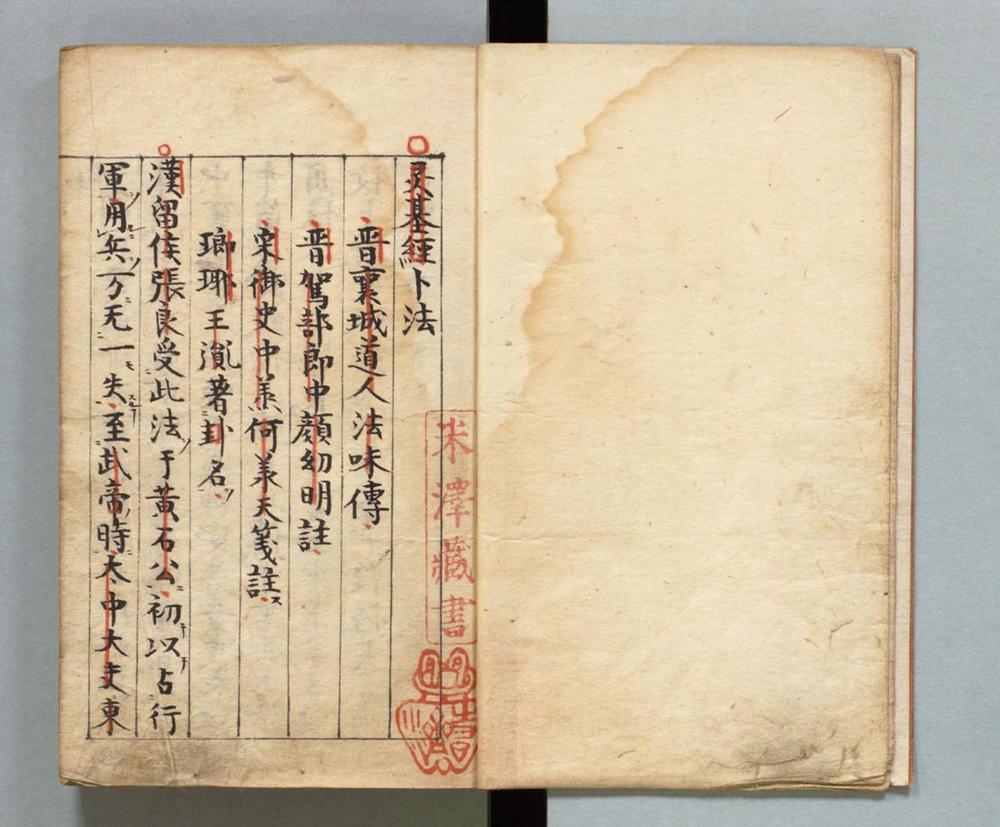 灵基經卜法
晋襄城道人法味傳
晋駕部郎中顔幼明註
宋御史中丞何承天笺註
瑯琊王胤著卦名
漢留侯張良受此法于黄石公初以占行
軍用兵万无一失至武帝時太中大夫東
米澤藏書